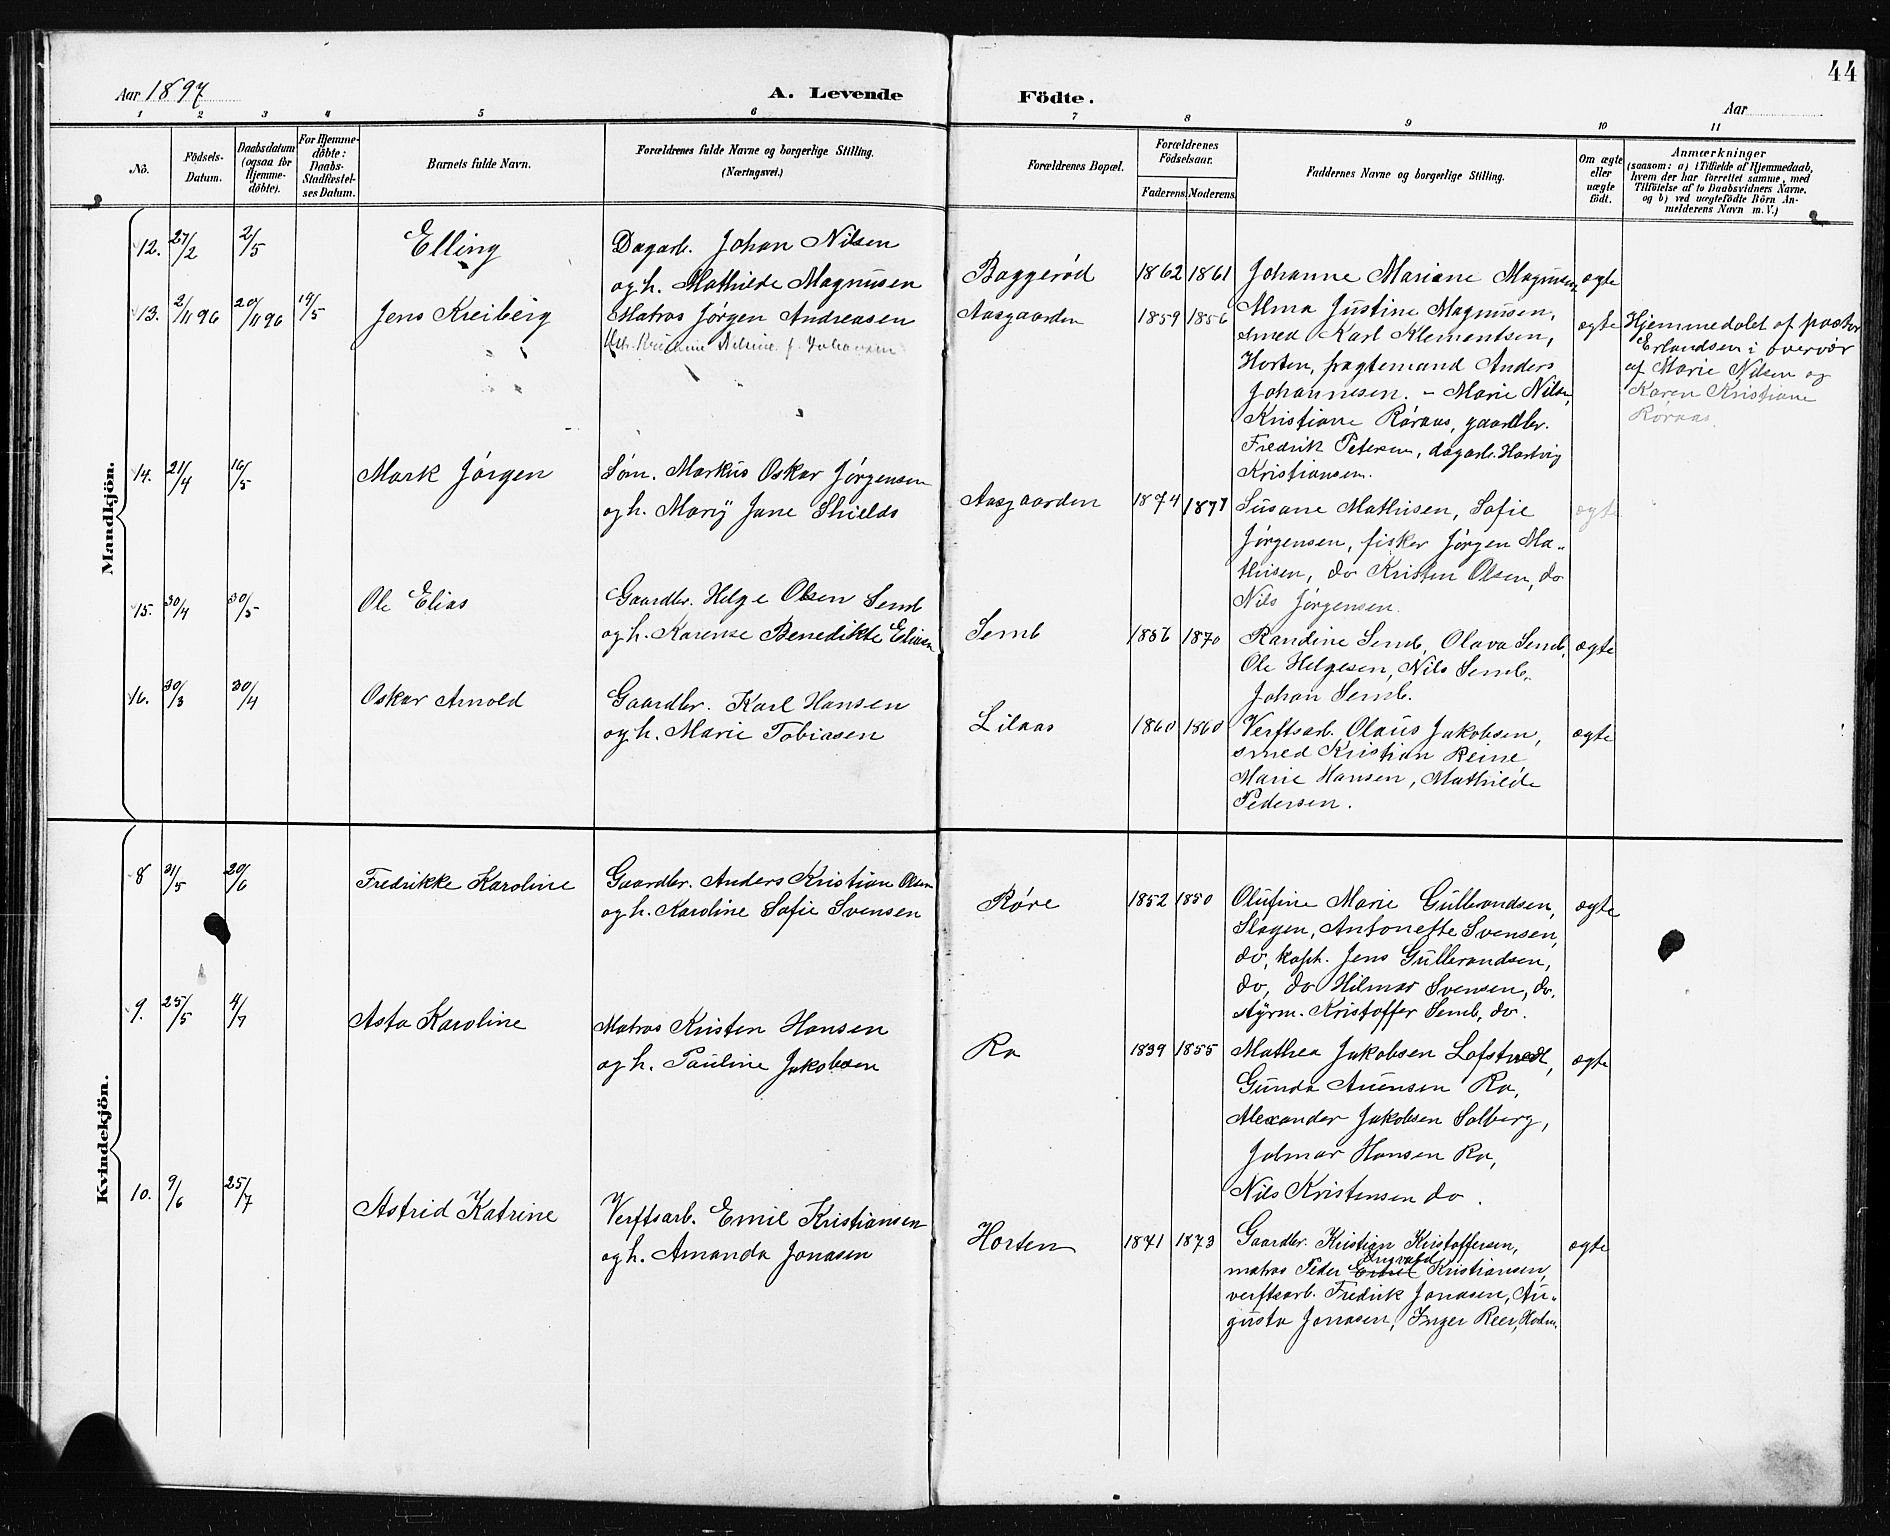 44
Aar 1897
A. Levende
Födte.
Aar
1 2 3 4 5 6 7 8 9 10 11
No.
Födsels-Datum.
Daabsdatum (ogsaa for Hjemme-döbte).
For Hjemme-döbte: Daabs-Stadfæstel-ses Datum.
Barnets fulde Navn.
Forældrenes fulde Navne og borgerlige Stilling.
(Næringsvei.)
Forældrenes Bopæl.
Forældrenes Födselsaar.
Faderens. Moderens.
Faddernes Navne og borgerlige Stilling.
Om ægte eller uægte födt.
Anmærkninger
(saasom: a) i Tilfælde af Hjemmedaab,
hvem der har forrettet samme, med
Tilföielse af to Daabsvidners Navne.
og b) ved uægtefödte Börn An-
melderens Navn m. V.)
Mandkjön.
12. 27/2 2/5 Elling Dagarb. Johan Nilsen
og h. Mathilde Magnusen
Baggerød 1862 1861 Johanne Mariane Magnusen ægte
Alma Justine Magnusen,
smed Karl Klementsen,
Horten, fragtemand Anders
Johannesen. - Marie Nilsen,
13. 2/11 96 20/11 96 19/5 Jens Kreiberg Matros Jørgen Andreasen
Nilsine f. Johansen
Aasgaarden 1859 1856 ægte
Kristiane Røraas, gaardbr.
Fredrik Petersen, dagarb. Hartvig
Kristiansen.
Hjemmedøbt af pastor
Erlandsen i overvær
af Marie Nilsen og
Karen Kristiane
Røraas.
14. 21/4 16/5 Mark Jørgen Søm. Markus Oskar Jørgensen
og h. Mary Jane Shields
Aasgaarden 1874 1877 Susane Mathisen, Sofie ægte
Jørgensen, fisker Jørgen Ma-
thisen, do Kristen Olsen, do
Nils Jørgensen.
15. 30/4 30/5 Ole Elias Gaardbr. Helge Olsen Semb
og h. Karense Benedikte Eliasen
Semb 1856 1870 Randine Semb, Olava Semb, ægte
Ole Helgesen, Nils Semb,
Johan Semb.
16. 30/3 30/4 Oskar Arnold Gaardbr. Karl Hansen
og h. Marie Tobiasen
Lilaas 1860 1860 Verftsarb. Olaus Jakobsen, ægte
smed Kristian Reine
Marie Hansen, Mathilde
Pedersen.
Kvindekjön.
8 31/5 20/6 Fredrikke Karoline Gaardbr. Anders Kristian Olsen
og h. Karoline Sofie Svensen
Røre 1852 1850 Olufine Marie Gulbrandsen, ægte
Slagen, Antonette Svensen,
do, kaph. Jens Gulbrandsen,
do, do Hilmar Svensen, do,
styrm. Kristoffer Semb, do.
9. 25/5 4/7 Asta Karoline Matros Kristen Hansen
og h. Pauline Jakobsen
Ra 1839 1855 Mathea Jakobsen Lofstvedt, ægte
Gunda Auensen Ra,
Alexander Jakobsen Solberg,
Jalmar Hansen Ra,
Nils Kristensen do.
10. 9/6 25/7 Astrid Katrine Verftsarb. Emil Kristiansen
og h. Amanda Jonasen
Horten 1871 1873 Gaardbr. Kristian Kristoffersen, ægte
Ingvald
matros Peder Emil Kristiansen,
verftsarb. Fredrik Jonasen, Au-
gusta Jonasen, Inger Reer, Horten.